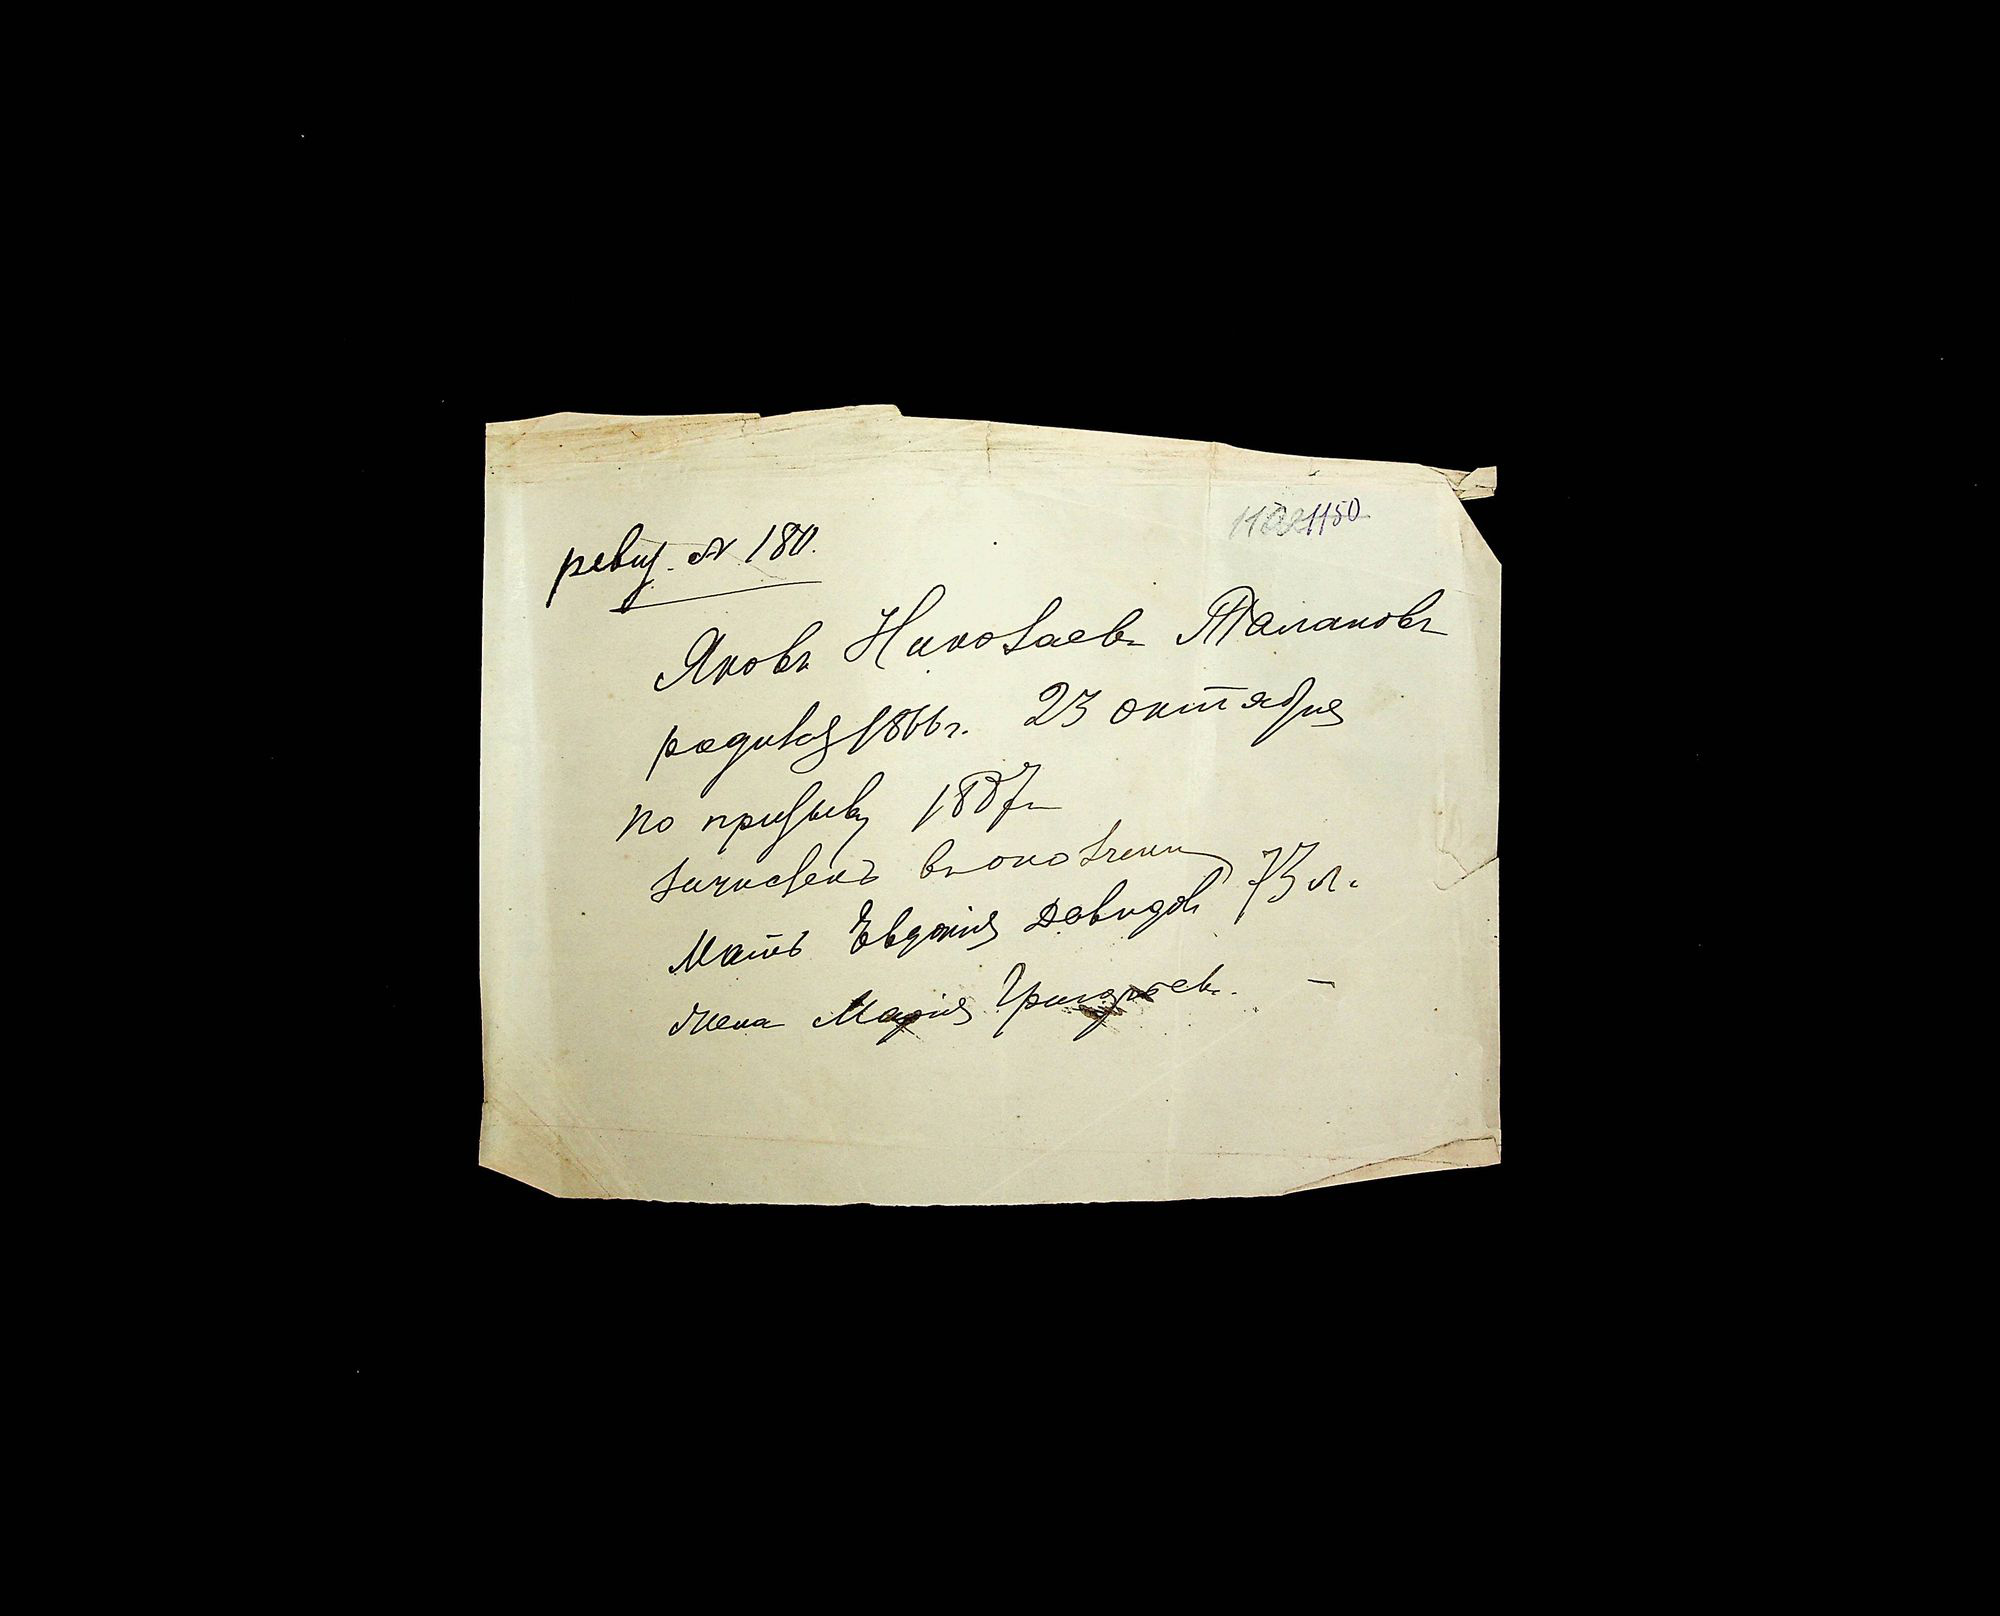 ревиз. № 180.
1150
Яковъ Николаевъ Талановъ
родился 1866 г. 23 октября
по призыву 1887 г
зачисленъ въ ополчении
Мать Евдокия Давидов 73 л.
жена Мария Григорьев. —